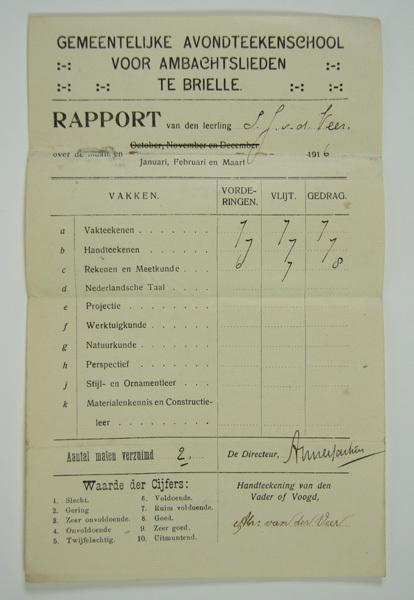 GEMEENTELIJKE AVONDTEEKENSCHOOL
VOOR AMBACHTSLIEDEN
TE BRIELLE.
RAPPORT van den leerling S. J. v. d. Veer.
October, November en December
over de maanden 1916
Januari, Februari en Maart
VAKKEN. VORDE-RINGEN. VLIJT. GEDRAG.
a Vakteekenen 7 7 7
b Handteekenen 7 7 7
c Rekenen en Meetkunde 6 7 8
d Nederlandsche Taal
e Projectie
f Werktuigkunde
g Natuurkunde
h Perspectief
j Stijl- en Ornamentleer
k Materialenkennis en Constructie-
leer
Aantal malen verzuimd 2. De Directeur,
Waarde der Cijfers:
1. Slecht. 6. Voldoende.
2. Gering 7. Ruim voldoende.
3. Zeer onvoldoende. 8. Goed.
4. Onvoldoende 9. Zeer goed.
5. Twijfelachtig. 10. Uitmuntend.
Handteekening van den
Vader of Voogd,
van der Veer